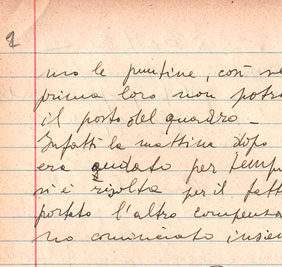 2
mo le puntine, così se
prima loro non potra
il posto del quadro -
Infatti la mattina dopo
era andato per temp
si è risolta per il fatt
portato l'altro compensa
no cominciato insie